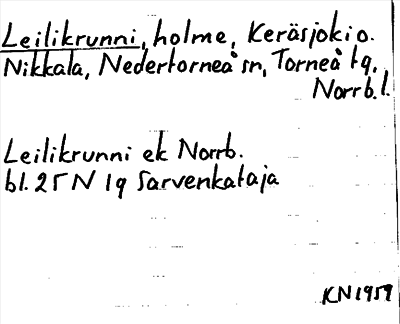 Leilikrunni, holme, Keräsjoki o.
Nikkala, Nedertorneå sn, Torneå tg,
Norrb. l.
Leilikrunni ek Norrb.
bl. 25 N 1q Sarvenkataja
KN 1959